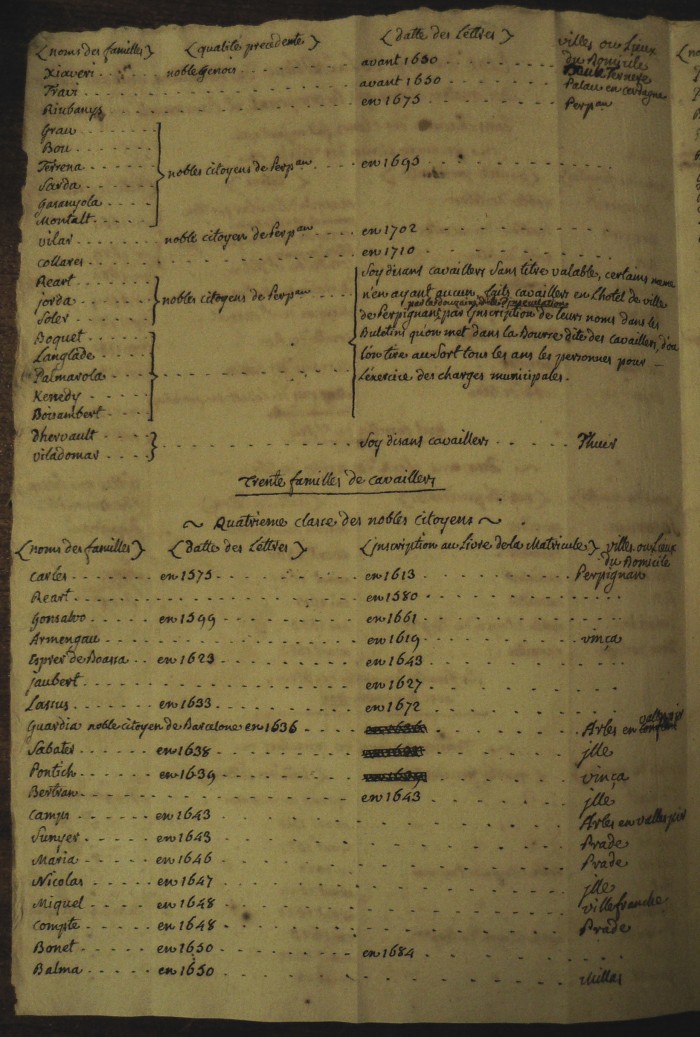 (noms des familles) (qualité précedente) (datte des Lettres) villes ou Lieux
du Domicile
Xiaveri noble Genois avant 1650
Travi avant 1650 Palau en cerdagne
Riubanys en 1675 Perpan
Grau
Bou
Terrena nobles citoyens de Perpan en 1693
Sarda
Garanyola
Montalt
vilar noble citoyen de Perpan en 1702
collares en 1710
Reart Soy disans cavaillers Sans titre valable, certains meme
jorda nobles citoyens de Perpan n'en ayant aucun, faits cavaillers en L'hotel de ville
Soler de Perpignan par L'inscription de leurs noms dans les
Boquet Buletini qu'on met dans la Bourse dite des cavaillers, d'ou
Langlade l'on tire au Sort tous les ans les personnes pour
Palmarola L'exercice des charges municipales.
Kenedy
Boisambert
Dhervault Soy disans cavaillers Thuir
viladomar
Trente familles de cavaillers
~ Quatrieme classe des nobles citoyens ~
(noms des familles) (datte des Lettres) (jnscription au Livre de la Matricule) villes ou Lieux
du Domicile
Carles en 1575 en 1613 Perpignan
Reart en 1580
Gonsalvo en 1599 en 1661
Armengau en 1619 vinça
Esprer de Boassa en 1623 en 1643
jaubert en 1627
Lassus en 1633 en 1672
Guardia noble citoyen de Barcelone en 1636 Arles en valespir
Sabater en 1638 jlle
Pontich en 1639 vinça
Bertran en 1643 jlle
Camps en 1643 Arles en vallespir
Sunyer en 1643 Prade
Maria en 1646 Prade
Nicolas en 1647 jlle
Miquel en 1648 villefranche
Compte en 1648 Prade
Bonet en 1650 en 1684
Balma en 1650 Millas